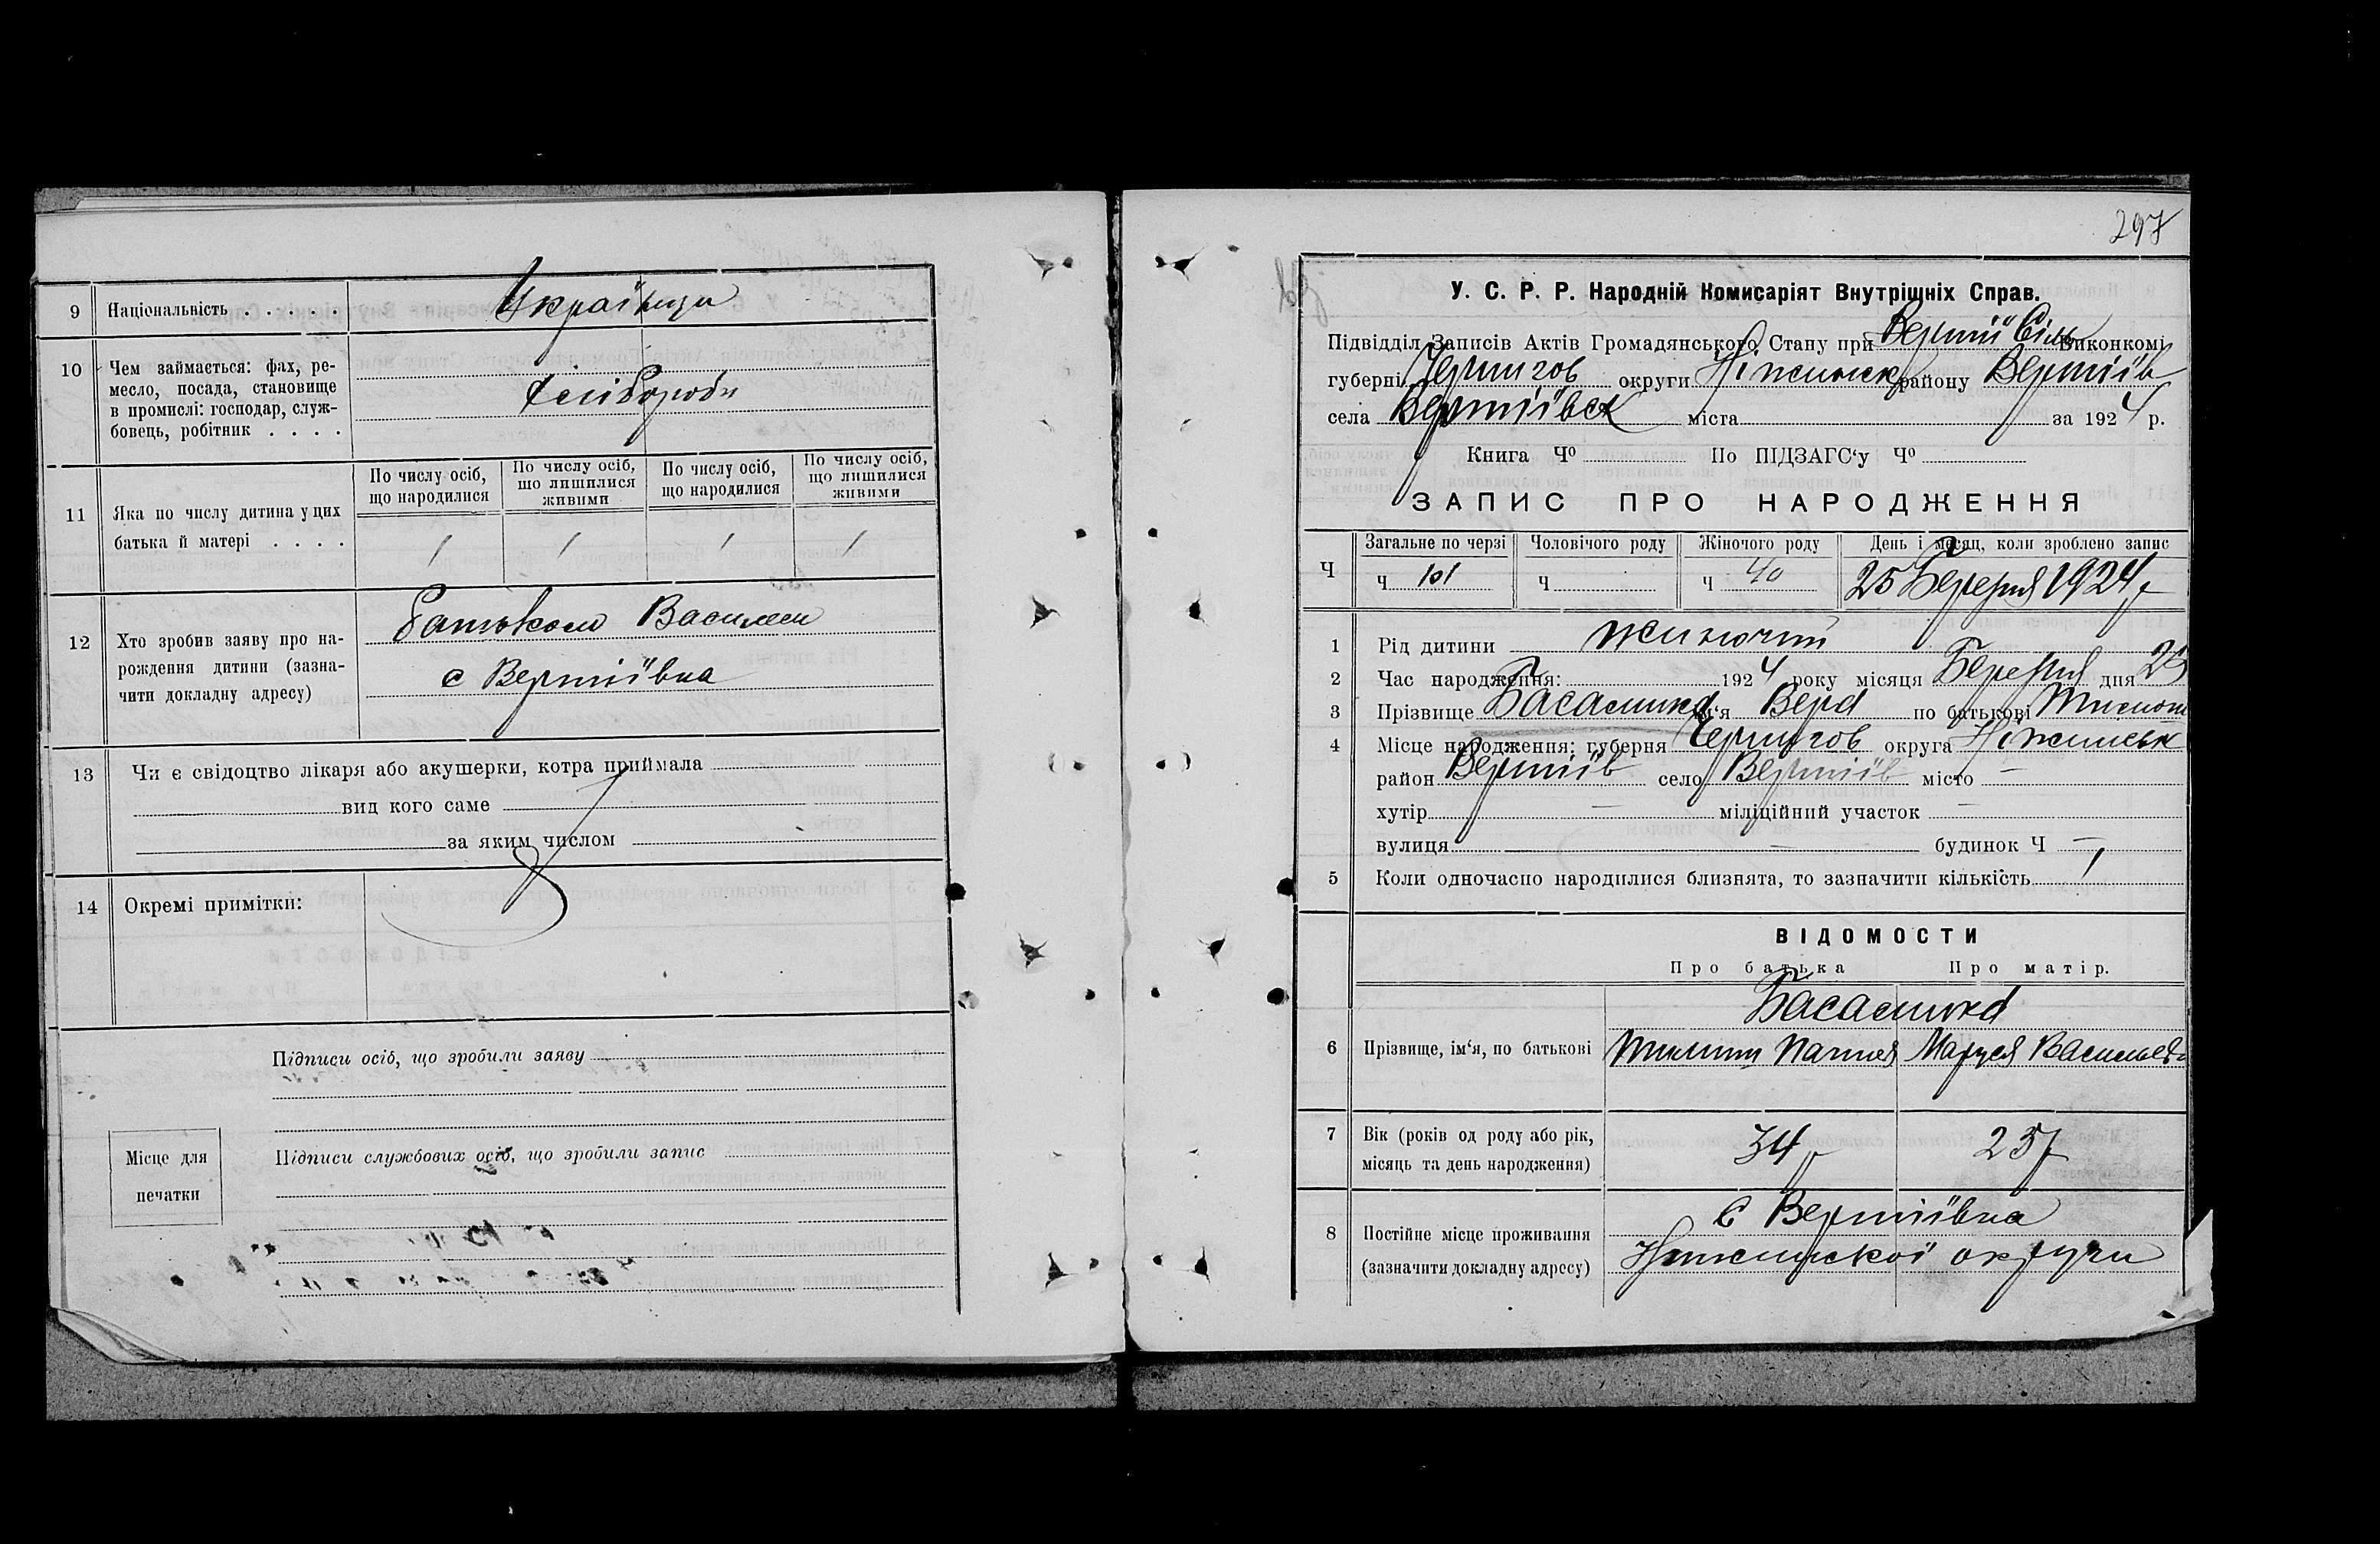 9 Національність . . . . . Українци
10 Чем займається: фах, ре-
месло, посада, становище
в промислі: господар, служ-
бовець, робітник . . . .
Хліборобы
11 Яка по числу дитина у цих
батька й матері . . . .
По числу осіб, що народилися
По числу осіб, що лишилися живими
По числу осіб, що народилися
По числу осіб, що лишилися живими
1 1 1 1
12 Хто зробив заяву про на-
рождення дитини (зазна-
чити докладну адресу)
батьком Василем
с Вертіївка
13 Чи є свідоцтво лікаря або акушерки, котра приймала
вид кого саме
за яким числом
14 Окремі примітки:
Підписи осіб, що зробили заяву
Місце для
печатки
Підписи службових осіб, що зробили запис
297
У. С. Р. Р. Народній Комисаріят Внутрішніх Справ.
Підвідділ Записів Актів Громадянського Стану при Вертіїв Сіль Виконкомі
губерні Чернигов округи Ніжинск району Вертіїв
села Вертіївск міста за 1924 р.
Книга Ч⁰ По ПІДЗАГС‘у Ч⁰
ЗАПИС ПРО НАРОДЖЕННЯ
Загальне по черзі Чоловічого роду Жіночого роду День і месяц, коли зроблено запис
Ч Ч 101 Ч Ч 40 25 Березня 1924 р
1 Рід дитини жиночий
2 Час народження: 1924 року місяця Березня дня 25
3 Прізвище ім‘я Вера по батькові
4 Місце народження: губерня Чернигов округа Ніжинськ
район Вертіїв село Вертіїв місто —
хутір — міліційний участок —
вулиця — будинок Ч —
5 Коли одночасно народилися близнята, то зазначити кількість 1
ВІДОМОСТИ
Про батька Про матір.
6 Прізвище, ім‘я, по батькові
Маруся Васильевн
7 Вік (років од роду або рік,
місяць та день народження)
34 р 23 р
8 Постійне місце проживання
(зазначити докладну адресу)
С Вертіївка
Нижинскої округи